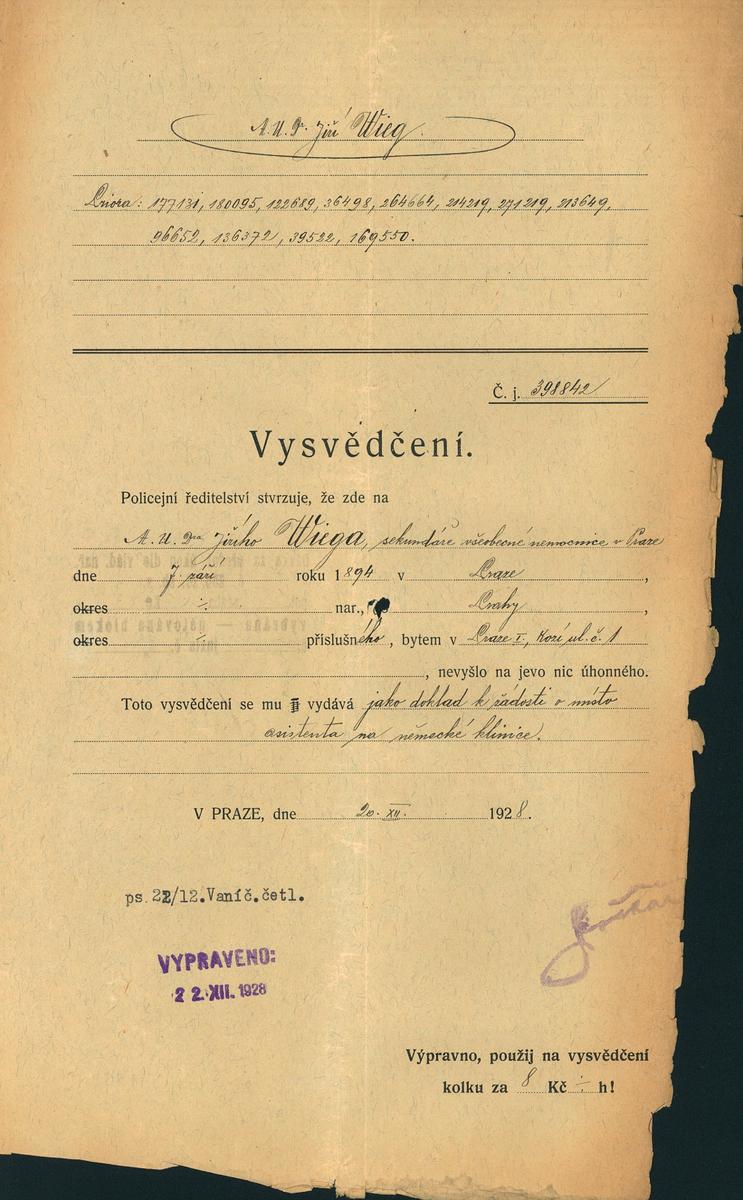 M. U. Dr. Jiří Wieg.
Priora: 177131, 180095, 122689, 36498, 264664, 214219, 271219, 213649,
96652, 136372, 39522, 169550.
Č. j. 398842
Vysvědčení.
Policejní ředitelství stvrzuje, že zde na
M. U. Dra Jiřího Wiega, sekundáře všeobecné nemocnice v Praze
dne 7. září roku 1894 v Praze,
okres ./. nar., do Prahy,
okres ./. příslušného, bytem v Praze I., Kozí ul. č. 1
, nevyšlo na jevo nic úhonného.
Toto vysvědčení se mu vydává jako doklad k žádosti o místo
asistenta na německé klinice.
V PRAZE, dne 20. XII. 1928.
ps. 22/12. Vaníč. četl.
VYPRAVENO:
22. XII. 1928
Výpravno, použij na vysvědčení
kolku za 8 Kč ./. h!